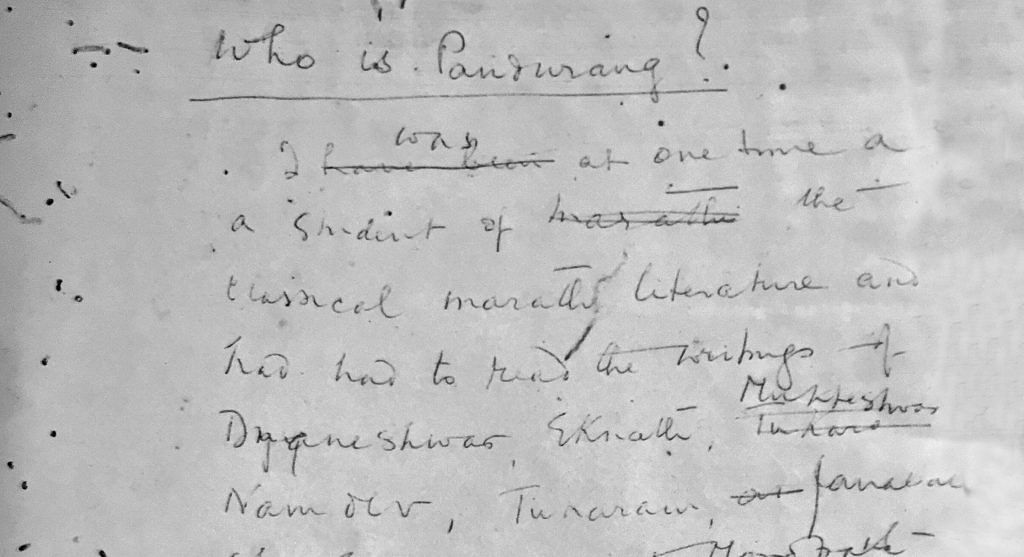 Who is Pandurang?
was
I have been at one time a
a student of marathi the
classical marathi literature and
had had to read the writings of
Mukteshwar
Dnyaneshwar, Eknath, Tukara
Namdev, Tukaram, or Janabai